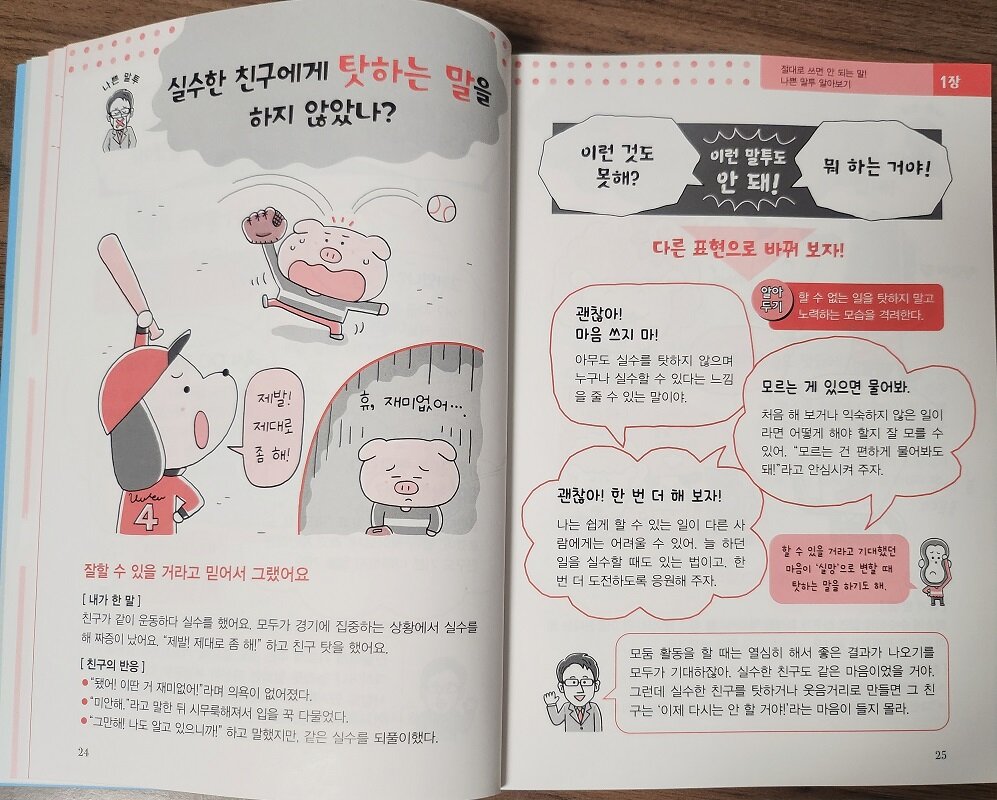 나쁜 말투
실수한 친구에게 탓하는 말을
하지 않았나?
제발!
제대로
좀 해!
휴, 재미없어….
4
잘할 수 있을 거라고 믿어서 그랬어요
[ 내가 한 말 ]
친구가 같이 운동하다 실수를 했어요. 모두가 경기에 집중하는 상황에서 실수를
해 짜증이 났어요. “제발! 제대로 좀 해!” 하고 친구 탓을 했어요.
[ 친구의 반응 ]
●“됐어! 이딴 거 재미없어!”라며 의욕이 없어졌다.
●“미안해.”라고 말한 뒤 시무룩해져서 입을 꾹 다물었다.
●“그만해! 나도 알고 있으니까!” 하고 말했지만, 같은 실수를 되풀이했다.
24
절대로 쓰면 안 되는 말!
나쁜 말투 알아보기
1장
이런 것도
못해?
이런 말투도
안 돼!
뭐 하는 거야!
다른 표현으로 바꿔 보자!
알아
두기
할 수 없는 일을 탓하지 말고
노력하는 모습을 격려한다.
괜찮아!
마음 쓰지 마!
아무도 실수를 탓하지 않으며
누구나 실수할 수 있다는 느낌
을 줄 수 있는 말이야.
모르는 게 있으면 물어봐.
처음 해 보거나 익숙하지 않은 일이
라면 어떻게 해야 할지 잘 모를 수
있어. “모르는 건 편하게 물어봐도
돼!”라고 안심시켜 주자.
괜찮아! 한 번 더 해 보자!
나는 쉽게 할 수 있는 일이 다른 사
람에게는 어려울 수 있어. 늘 하던
일을 실수할 때도 있는 법이고. 한
번 더 도전하도록 응원해 주자.
할 수 있을 거라고 기대했던
마음이 ‘실망’으로 변할 때
탓하는 말을 하기도 해.
모둠 활동을 할 때는 열심히 해서 좋은 결과가 나오기를
모두가 기대하잖아. 실수한 친구도 같은 마음이었을 거야.
그런데 실수한 친구를 탓하거나 웃음거리로 만들면 그 친
구는 ‘이제 다시는 안 할 거야!’라는 마음이 들지 몰라.
25